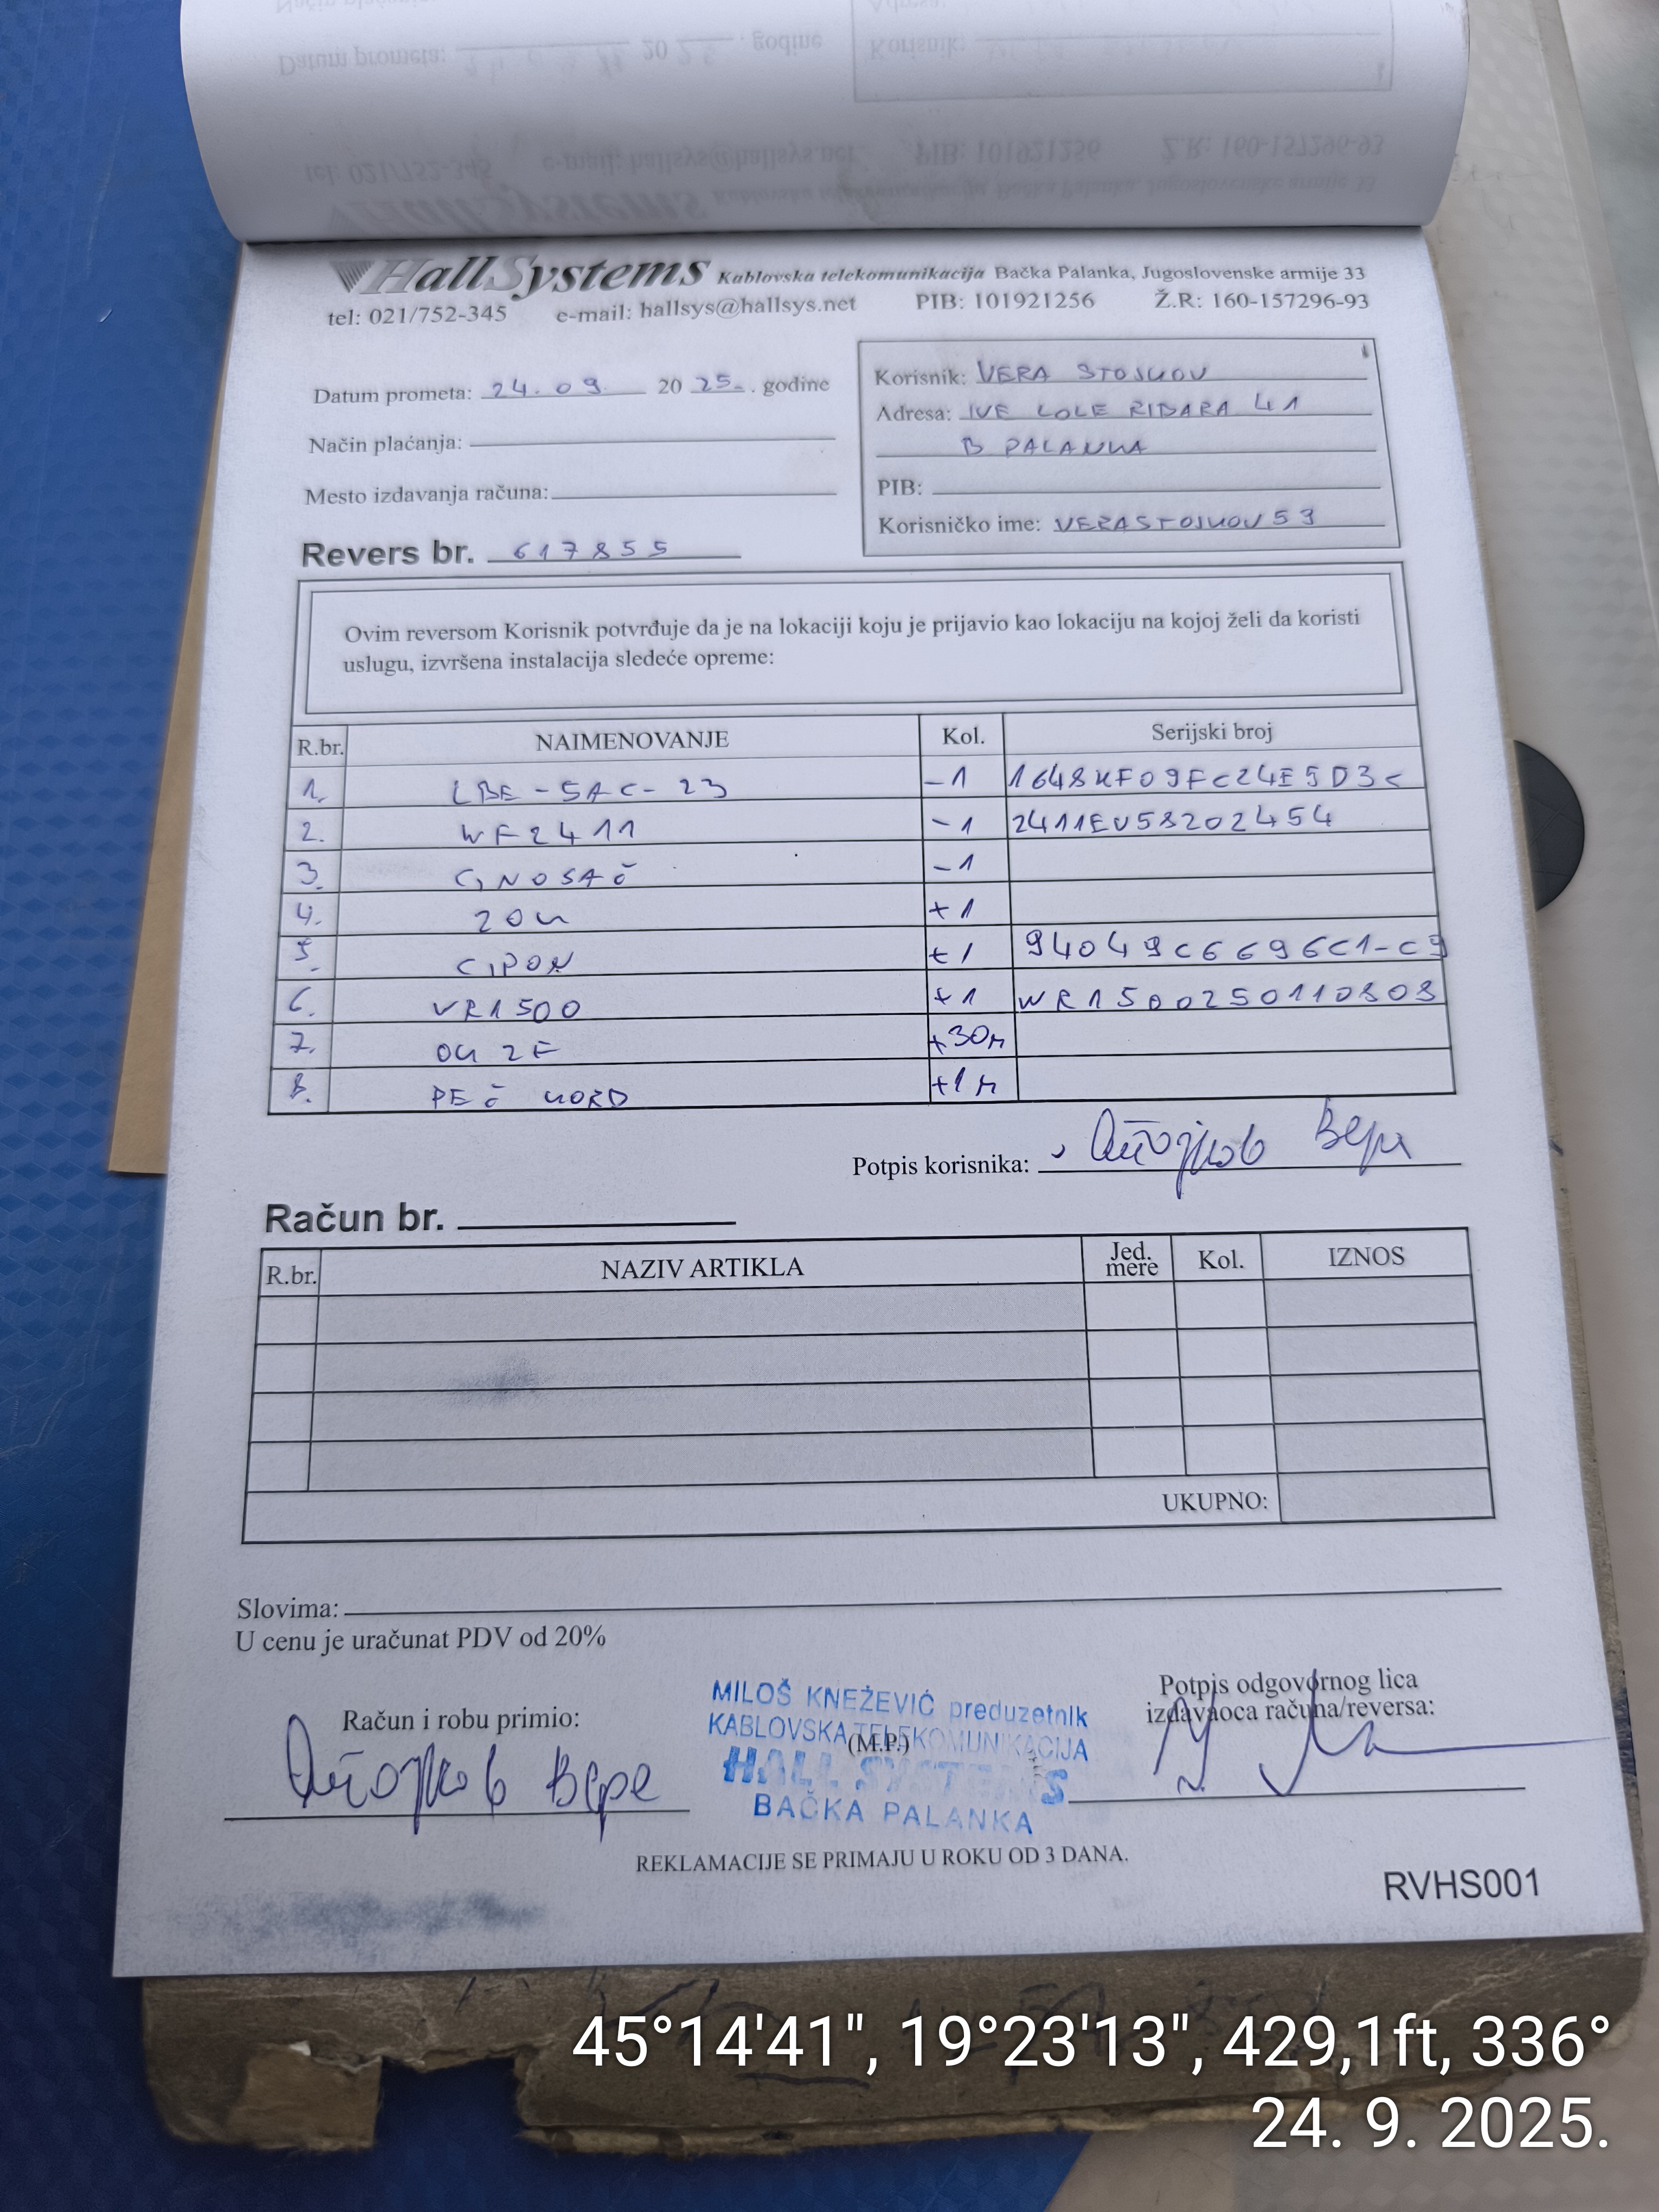 HallSystems Kablovska telekomunikacija Bačka Palanka, Jugoslovenske armije 33
tel: 021/752-345 e-mail: hallsys@hallsys.net PIB: 101921256 Ž.R: 160-157296-93
Datum prometa: 24.09 2025. godine
Način plaćanja:
Mesto izdavanja računa:
Korisnik: VERA STOJKOV
Adresa: IVE LOLE RIBARA 41
B PALANKA
PIB:
Korisničko ime: VERASTOJKOV53
Revers br. 617855
Ovim reversom Korisnik potvrđuje da je na lokaciji koju je prijavio kao lokaciju na kojoj želi da koristi
uslugu, izvršena instalacija sledeće opreme:
R.br. NAIMENOVANJE Kol. Serijski broj
1. LBE-5AC-23 -1 1648KF09FC24E5D3C
2. WF2411 -1 2411EV58202454
3. G NOSAČ -1
4. ZOK +1
5. GPON +1 94049C6696C1-C9
6. VR1500 +1 WR1500250110808
7. OK 2F +30m
8. PEČ KORD +1m
Potpis korisnika: Стојков Вера
Račun br.
R.br. NAZIV ARTIKLA Jed. mere Kol. IZNOS
UKUPNO:
Slovima:
U cenu je uračunat PDV od 20%
Račun i robu primio:
Стојков Вера
MILOŠ KNEŽEVIĆ preduzetnik
KABLOVSKA TELEKOMUNIKACIJA
(M.P.)
HALL SYSTEMS
BAČKA PALANKA
Potpis odgovornog lica
izdavaoca računa/reversa:
REKLAMACIJE SE PRIMAJU U ROKU OD 3 DANA.
RVHS001
45°14'41", 19°23'13", 429,1ft, 336°
24. 9. 2025.